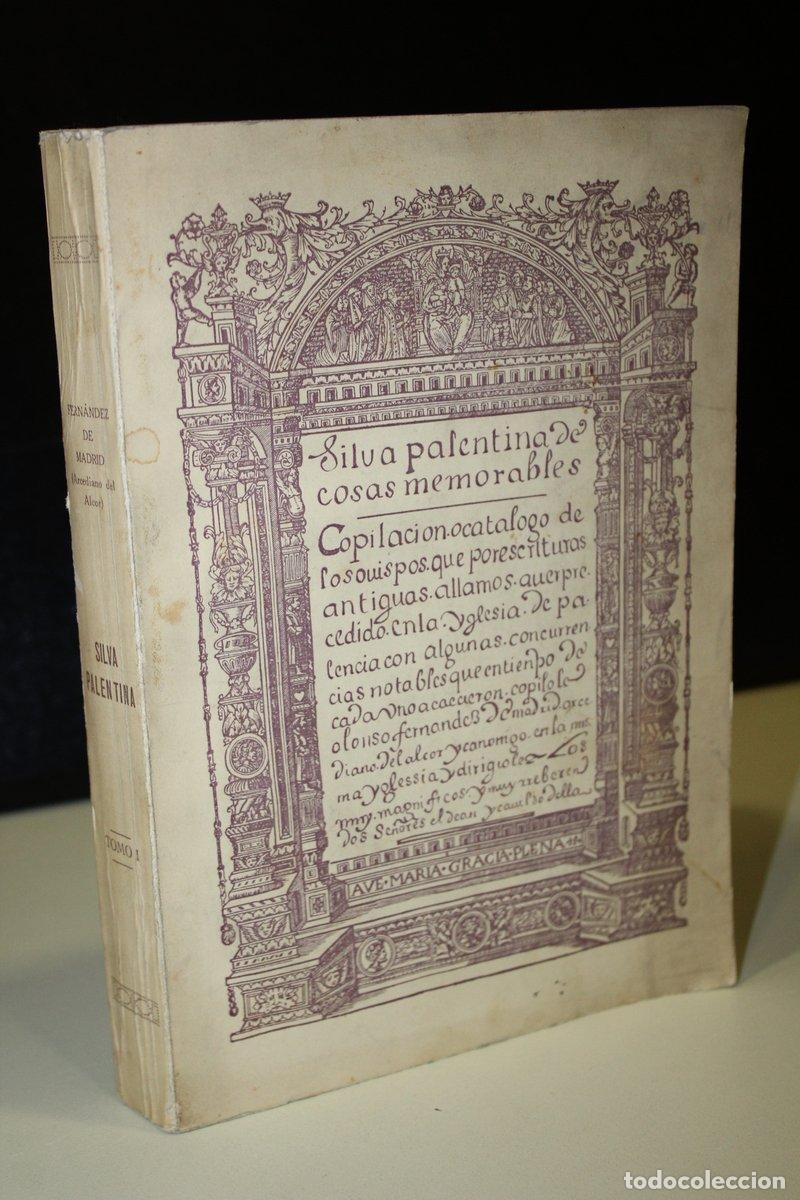 FERNÁNDEZ
DE
MADRID
(Arcediano del
Alcor)
SILVA
PALENTINA
TOMO I
Silua palentina de
cosas memorables
Copilacion.o catalogo de
los ouispos.que por escrituras
antiguas.allamos.auer pre.
cedido.en la yglesia.de pa.
lencia con algunas.concurren
cias notables que en tienpo de
cada vno acaecieron.copilole
alonso fernandez de madrid.arce
diano.del alcor y canonigo.en la mis
ma yglessia y dirigiole a Los
muy.magnificos y muy rreberen
dos Señores el dean y cauildo della
AVE·MARIA·GRACIA·PLENA
todocoleccion